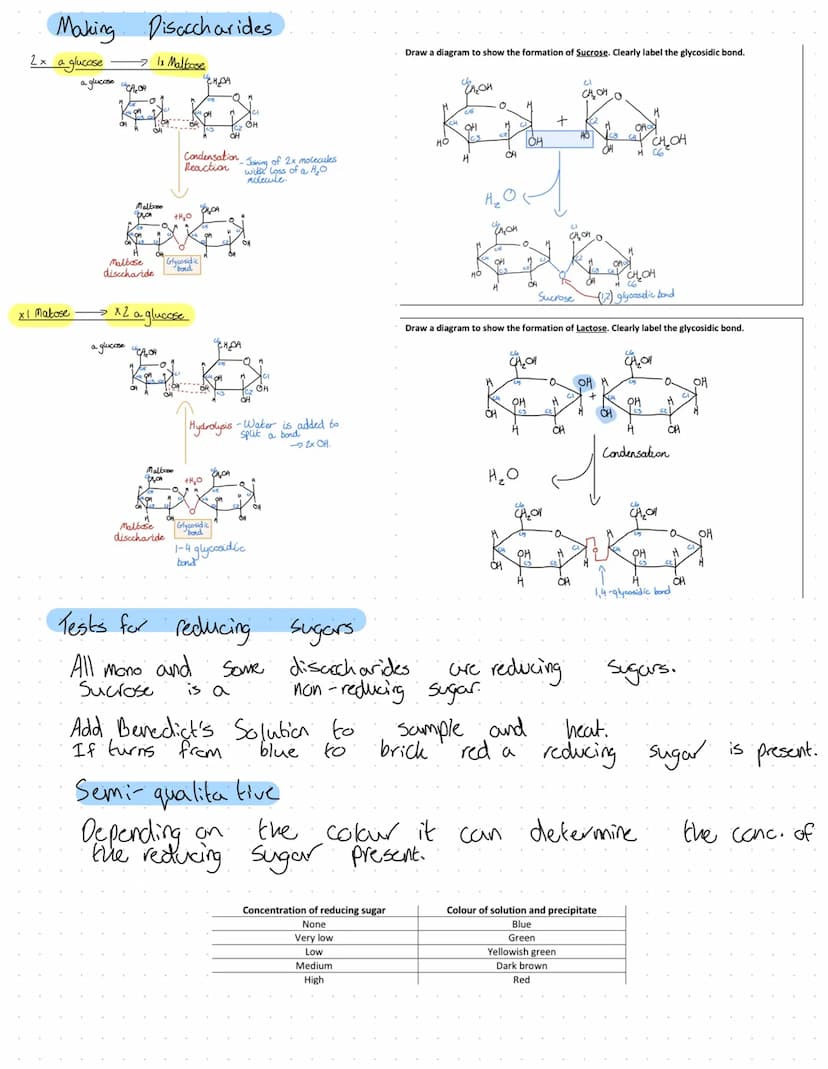 Making Disaccharides
2x a glucose → 1x Maltose
a glucose
CH₂OH
CH₂OH
Condensation Reaction - Joining of 2x molecules
with loss of a H₂O
molecule.
Maltose
+H₂O
Maltose
disaccharide
Glycosidic
bond
x1 Maltose → x2 a glucose
a glucose
CH₂OH
CH₂OH
Hydrolysis - Water is added to
split a bond
→ 2x OH.
Maltose
+H₂O
Maltose
disaccharide
Glycosidic
bond
1-4 glycosidic
bond
Draw a diagram to show the formation of Sucrose. Clearly label the glycosidic bond.
CH₂OH
CH₂OH
+
OH HO
CH₂OH
H₂O
CH₂OH
CH₂OH
CH₂OH
Sucrose (1,2) glycosidic bond
Draw a diagram to show the formation of Lactose. Clearly label the glycosidic bond.
CH₂OH
CH₂OH
OH
+
OH
Condensation
H₂O
CH₂OH
CH₂OH
1,4-glycosidic bond
Tests for reducing sugars
All mono and some disaccharides are reducing sugars.
Sucrose is a non-reducing sugar.
Add Benedict's Solution to sample and heat.
If turns from blue to brick red a reducing sugar is present.
Semi-qualitative
Depending on the colour it can determine the conc. of
the reducing sugar present.
Concentration of reducing sugar Colour of solution and precipitate
None Blue
Very low Green
Low Yellowish green
Medium Dark brown
High Red